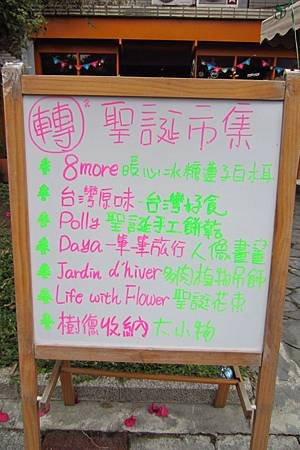 轉 聖誕市集
8more 暖心冰糖蓮子白木耳
台灣原味 台灣好食
Polly 聖誕手工餅乾
Daya 一筆一筆旅行 人像畫畫
Jardin d'hiver 多肉植物吊飾
Life with Flower 聖誕花束
樹像收納 大小物